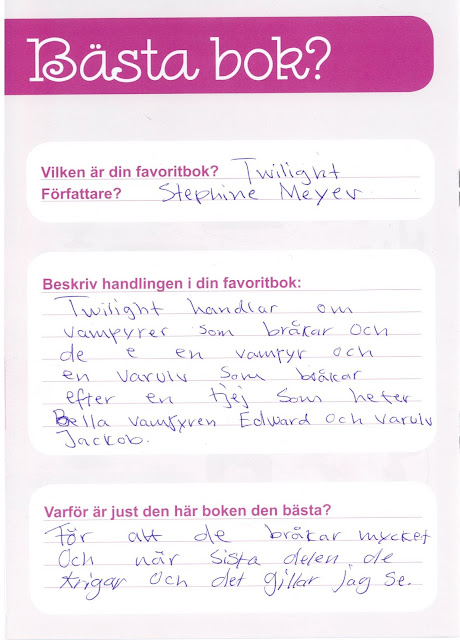 Bästa bok?
Vilken är din favoritbok? Twilight
Författare? Stephine Meyer
Beskriv handlingen i din favoritbok:
Twilight handlar om
vampyrer som bråkar och
de e en vampyr och
en varulv som bråkar
efter en tjej som heter
Bella vampyren Edward och varulv
Jackob.
Varför är just den här boken den bästa?
För att de bråkar mycket
och när sista delen de
krigar och det gillar jag se.